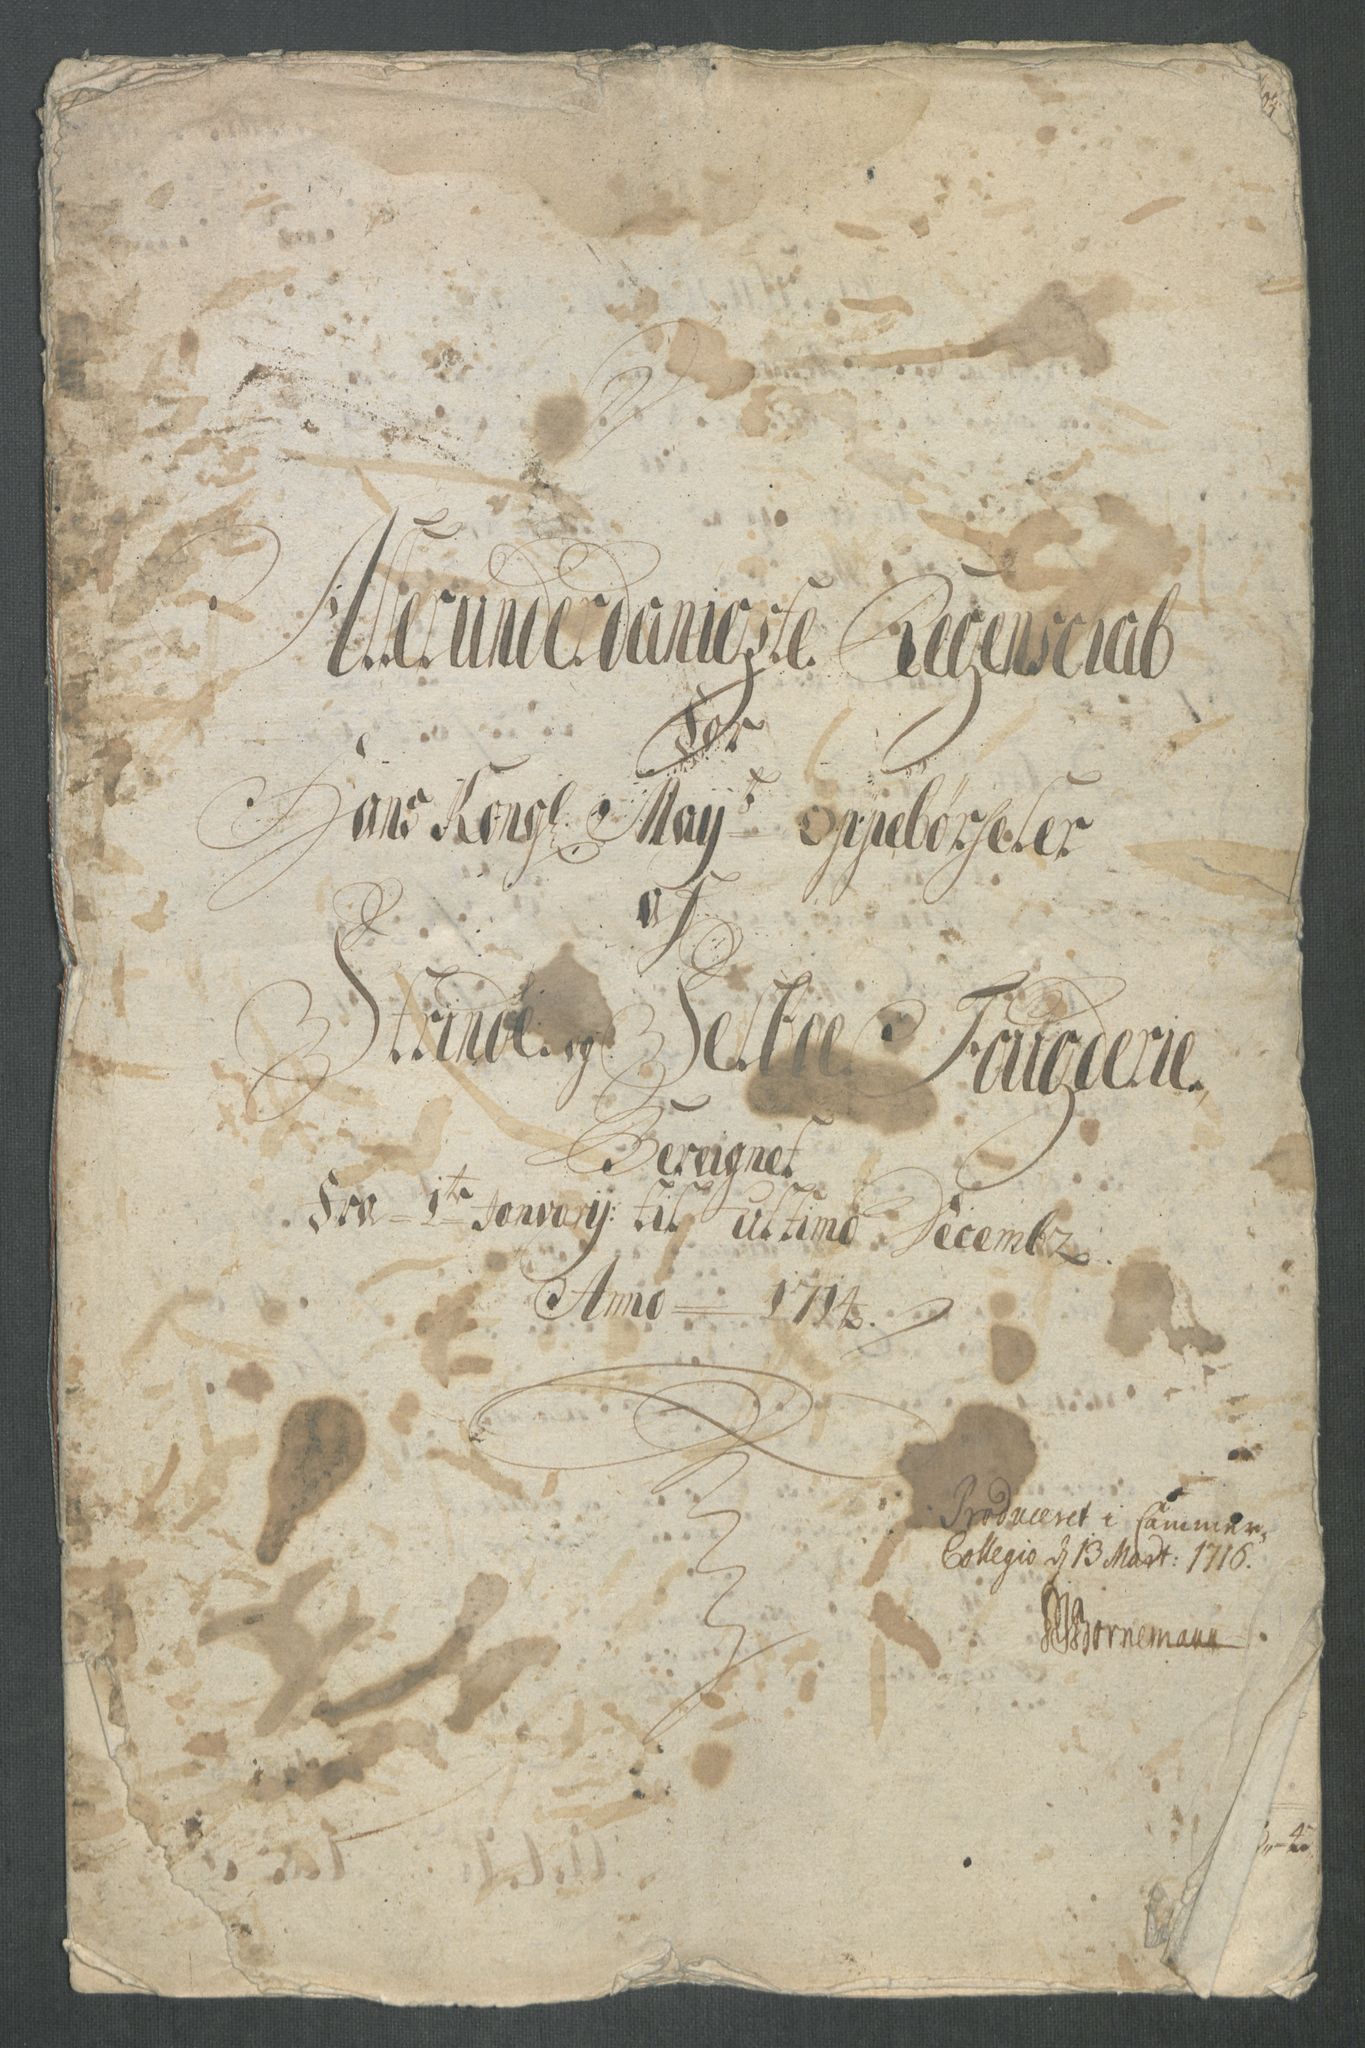 Allerunderdanigste Regenscab
For
Hans Kongl: May:ts Oppebørseler
af
Strinde og Selboe Fougderie
Bereignet
Fra 1te Januarij: til ultimo Decembr
Anno 1714.
Produceret i Cammer-
Collegio d 13 Mart: 1716.
Bornemann